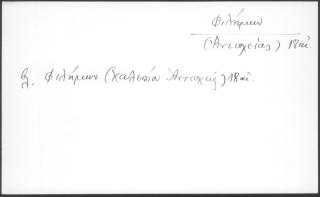 Φιλήμων
(Αντιοχείας) 18 αι.
βλ. Φιλήμων (Χαλεπίου Αντιοχείας) 18 αι.